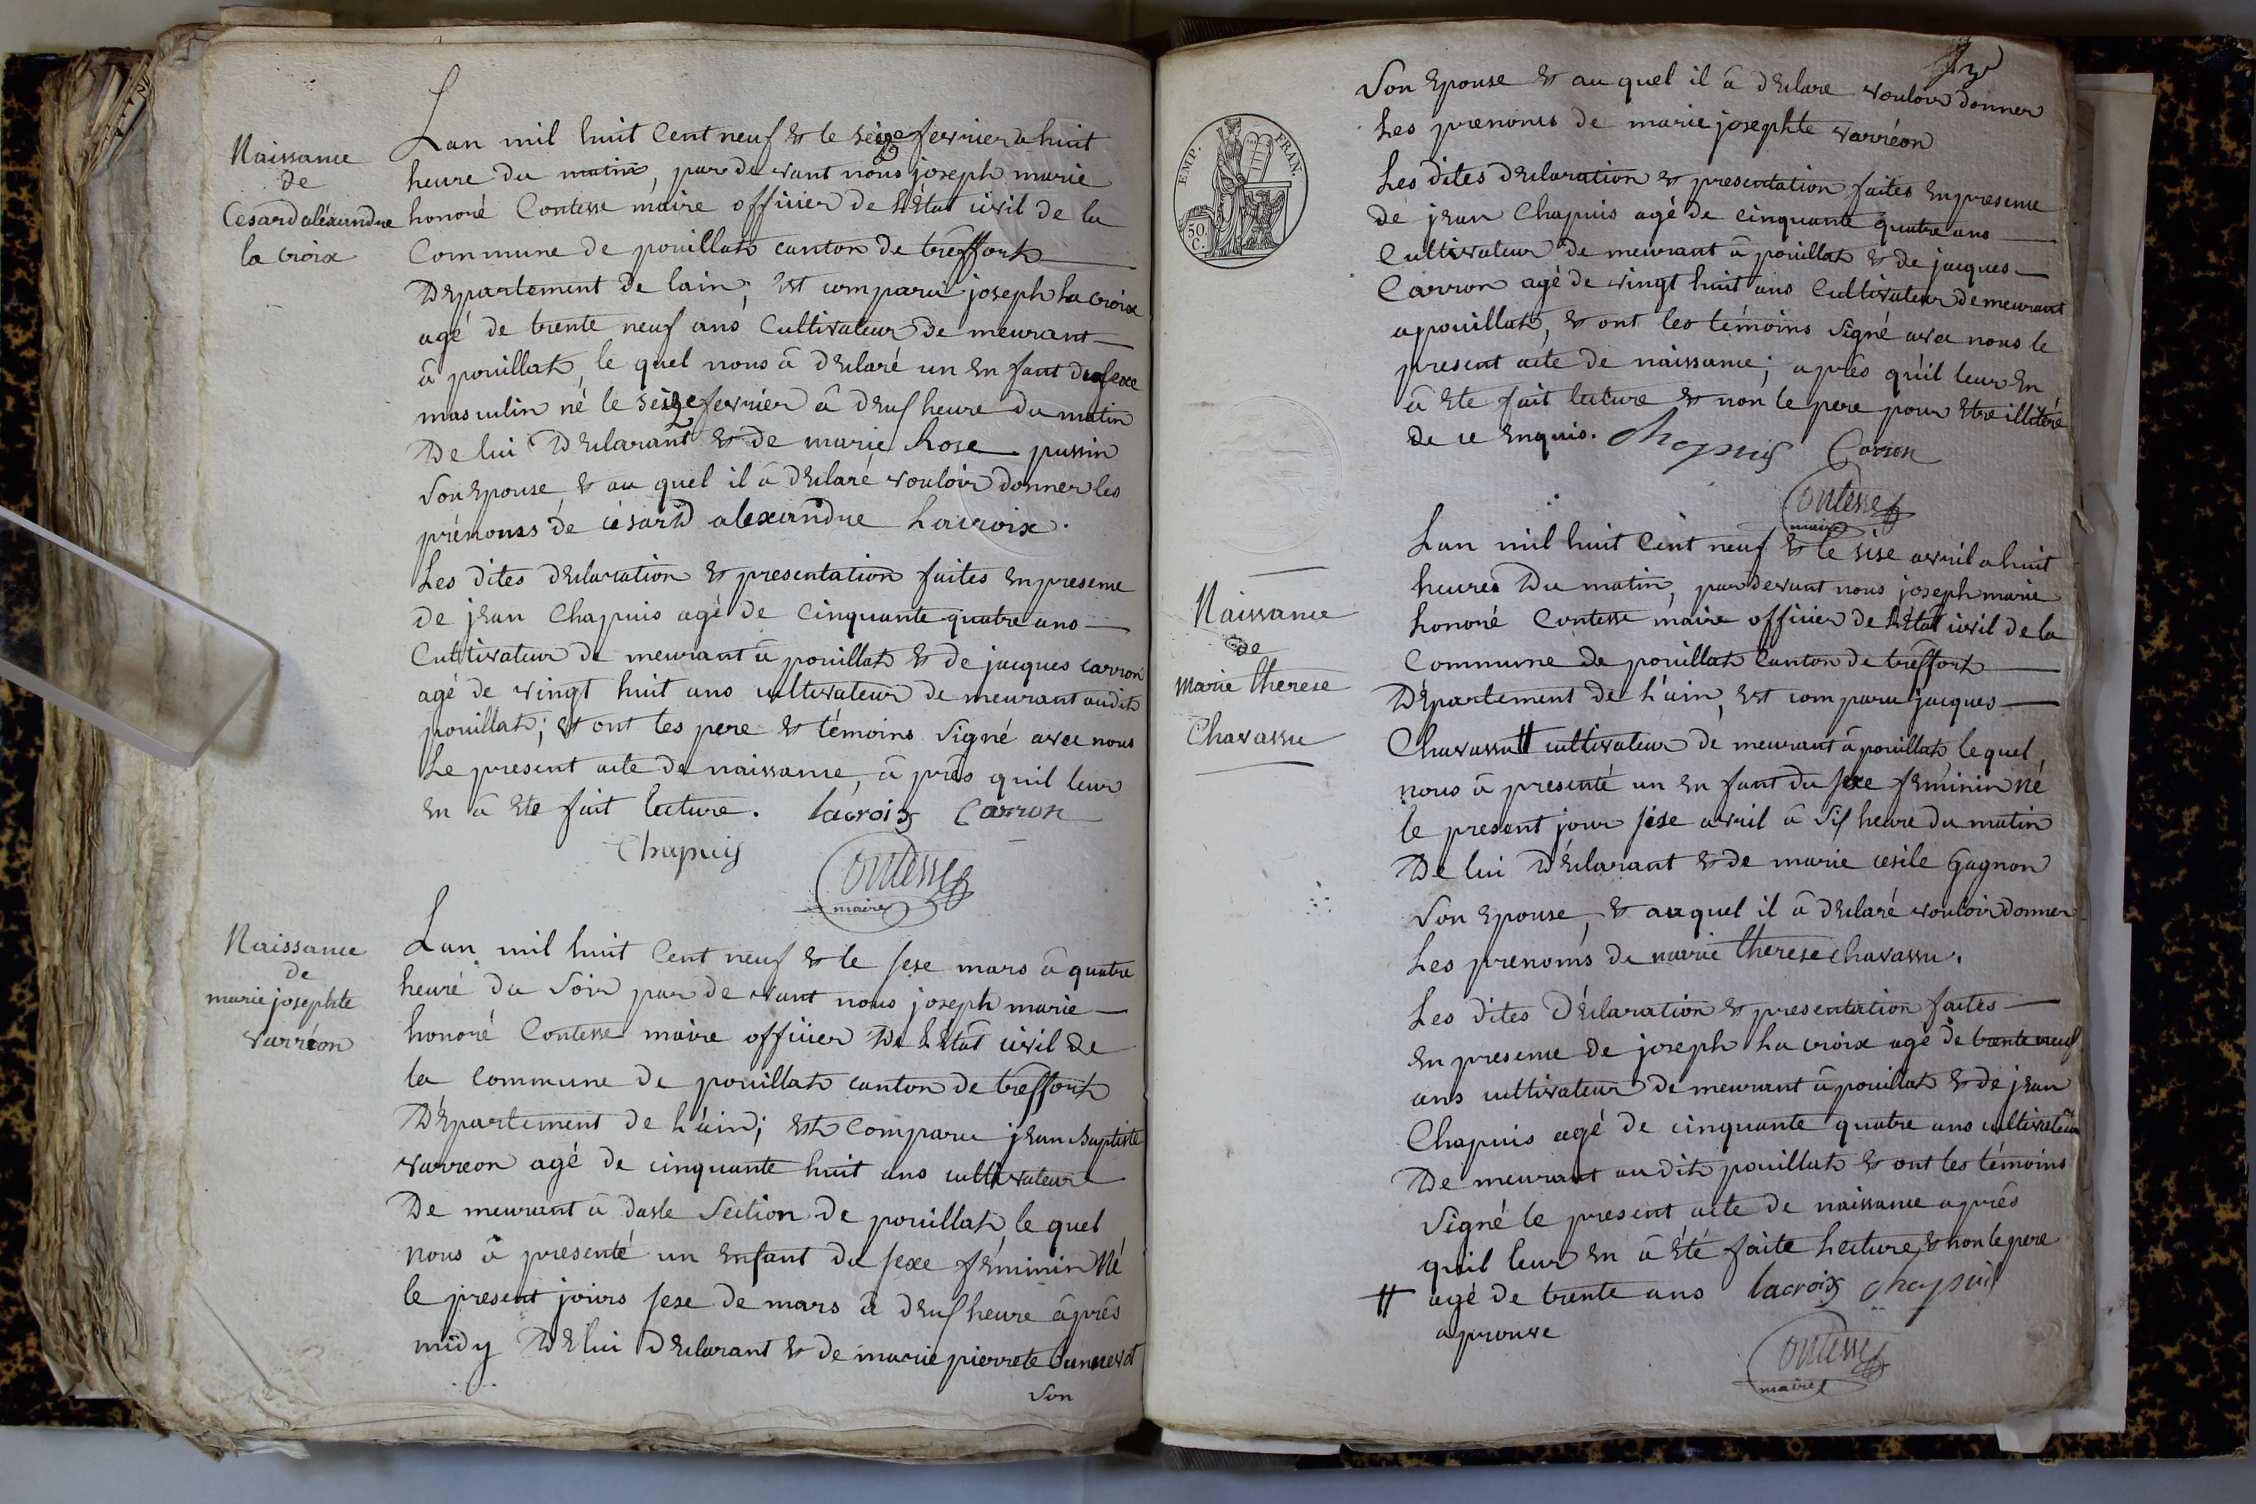 Naissance
de
Cesard aléxandre
la croix
Lan mil huit Cent neuf & le seize fevrier a huit
heure du matin, par de vant nous joseph marie
honoré Contesse maire officier de L'Etat civil de la
Commune de pouillat canton de treffort
Departement de lain; Est comparu joseph La croix
agé de trente neuf ans Cultivateur de meurant
â pouillat, le quel nous â déclaré un En fant du sexe
masculin né le seize fevrier â deuf heure du matin
De lui Déclarant & de marie Rose pussin
Son Epouse & au quel il â déclaré vouloir donner les
prénoms de césard alexandre Lacroix.
Les dites déclaration & presentation faites En presence
de jean Chapuis agé de Cinquante quatre ans
Cultivateur de meurant â pouillat & de jacques carron
agé de vingt huit ans cultivateur de meurant audit
pouillat; & ont les pere & témoins Signé avec nous
Le present acte de naissance, â prês quil leur
en â Eté fait lecture. lacroix Carron
Chapuis
Contesse
maire
Naissance
de
marie josephte
varréon
Lan mil huit Cent neuf & le sese mars â quatre
heure du Soir par de vant nous joseph marie
honoré Contesse maire officier De L'Etat civil de
la Commune de pouillat canton de treffort
Département de L'ain; Est Comparu jean baptiste
varreon agé de cinquante huit ans cultivateur
De meurant â dasle Section de pouillat, le quel
nous â presenté un Enfant du sexe féminin Né
le present jours sese de mars â deuf heure âprês
midy De lui Déclarant & de marie pierrete
Son
Son Epouse & au quel il â déclaré vouloir donner
Les prenoms de marie josephte varréon
Les dites déclaration & presentation faites En presence
de jean Chapuis agé de cinquante quatre ans
Cultivateur de meurant â pouillat & de jacques
Carron agé de vingt huit ans Cultivateur de meurant
a pouillat, & ont les témoins Signé avec nous le
present acte de naissance; aprês quil leur En
â Ete fait lecture & non le pere pour Etre illitéré
de ce Enquis. Chapuis Carron
Contesse
maire
EMP. FRAN.
50.
C.
Naissance
de
marie therese
Chavassu
Lan mil huit Cent neuf & le sise avril a huit
heures Du matin, par devant nous joseph marie
honoré Contesse maire officier de L'Etat civil de la
Commune de pouillat Canton de treffort
Département de L'ain, Est comparu jacques
Chavassu # cultivateur de meurant â pouillat, le quel
nous â presenté un En fant du sexe féminin Né
le present jour sise avril â Sif heure du matin
De lui Déclarant & de marie cesile Gagnon
Son Epouse, & auquel il â déclaré vouloir donner
Les prenoms de marie therese chavassu.
Les dites Déclaration & presentation faites
En presence de joseph La croix agé de trente neuf
ans cultivateur de meurant â pouillat & de jean
Chapuis agé de cinquante quatre ans cultivateur
De meurant au dit pouillat & ont les témoins
Signé le present acte de naissance aprês
quil leur En â Eté faite Lecture, & non le pere
# agé de trente ans lacroix chapuis
aprouve
Contesse
maire